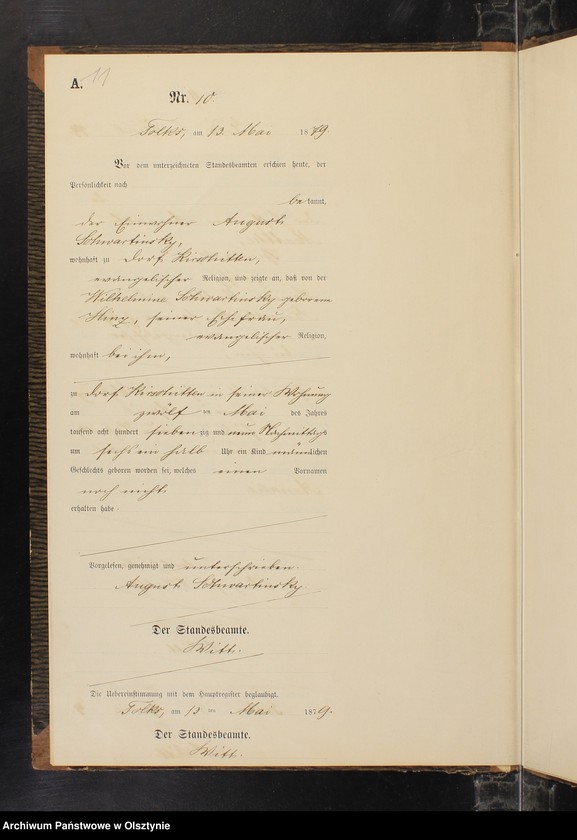 A. 11
Nr. 10.
Tolks, am 13. Mai 1879.
Vor dem unterzeichneten Standesbeamten erschien heute, der
Persönlichkeit nach
bekannt,
der Einwohner August
Schwartinsky,
wohnhaft zu Dorf
evangelischer Religion, und zeigte an, daß von der
Wilhelmine Schwartinsky geborenen
Hinz, seiner Ehefrau,
evangelischer Religion,
wohnhaft bei ihm,
zu Dorf in seiner Wohnung
am zwölf ten Mai des Jahres
tausend acht hundert siebenzig und neun Nachmittags
um sechs ein halb Uhr ein Kind männlichen
Geschlechts geboren worden sei, welches einen Vornamen
noch nicht
erhalten habe.
Vorgelesen, genehmigt und unterschrieben.
August Schwartinsky.
Der Standesbeamte.
Witt.
Die Uebereinstimmung mit dem Hauptregister beglaubigt.
Tolks, am 13 ten Mai 1879.
Der Standesbeamte.
Witt.
Archiwum Państwowe w Olsztynie